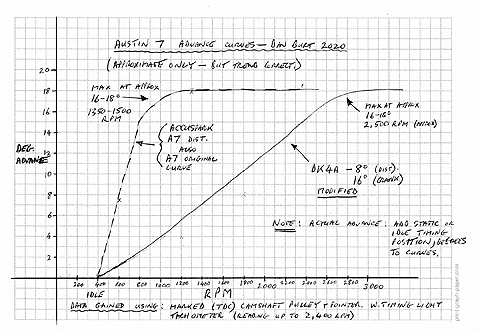 AUSTIN 7 ADVANCE CURVES — DAN BURT 2020
(APPROXIMATE ONLY — BUT TREND CORRECT.)
20
18
16
14
12
10
8
6
4
2
0
DEG.
ADVANCE
MAX AT APPROX
16-18°
1350-1500
RPM
ACCUSPARK
A7 DIST.
ALSO
A7 ORIGINAL
CURVE
MAX AT APPROX
16-18°
2,500 RPM
DK4A — 8° (DIST).
16° (CRANK)
MODIFIED
NOTE: ACTUAL ADVANCE: ADD STATIC OR
IDLE TIMING
POSITION, DEGREES
TO CURVES.
200 400 600 800 1000
3000
IDLE
RPM
DATA GAINED USING: MARKED (TDC) CAMSHAFT PULLEY & POINTER. W. TIMING LIGHT
TACHOMETER (READING UP TO 2,400 RPM)
print-graph-paper.com